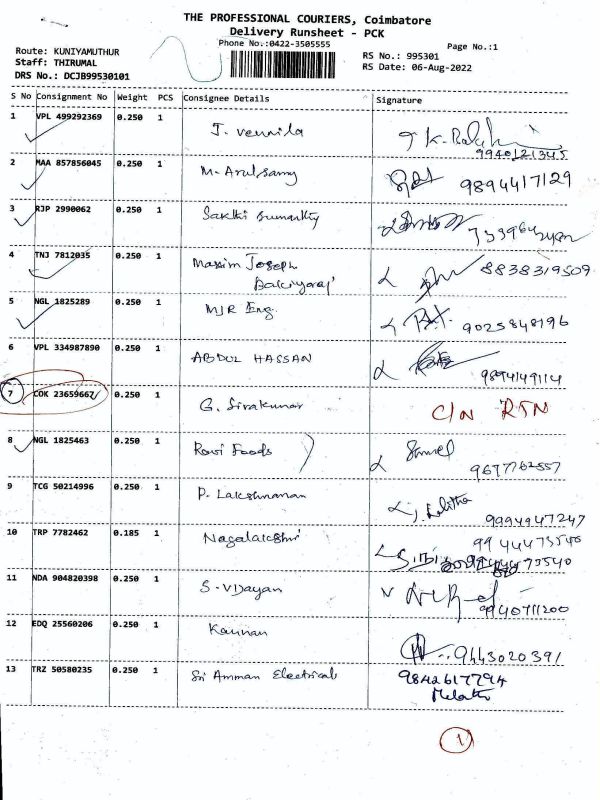 THE PROFESSIONAL COURIERS, Coimbatore
Delivery Runsheet - PCK
Phone No.:0422-3505555
Page No.:1
Route: KUNIYAMUTHUR
Staff: THIRUMAL
DRS No.: DCJB99530101
RS No.: 995301
RS Date: 06-Aug-2022
S No Consignment No Weight PCS Consignee Details Signature
1 VPL 499292369 0.250 1 J. vennila
9940121345
2 MAA 857856045 0.250 1 M. Arulsamy 9894417129
3 RJP 2990062 0.250 1 Sakthi
4 TNJ 7812035 0.250 1 Maxim Joseph 8838319509
5 NGL 1825289 0.250 1 MJR Eng. 9025848196
6 VPL 334987890 0.250 1 ABDUL HASSAN
9894149114
7 COK 23659667/ 0.250 1 G. Sivakumar C/N RTN
8 NGL 1825463 0.250 1 Ravi Foods
9677762557
9 TCG 50214996 0.250 1 P. Lakshmanan J. Lalitha
9994947247
10 TRP 7782462 0.185 1 Nagalakshmi
11 NDA 904820398 0.250 1 S. Vijayan
9940711200
12 EDQ 25560206 0.250 1 Kannan 9443020391
13 TRZ 50580235 0.250 1 Sri Amman Electrical 9842617794
1